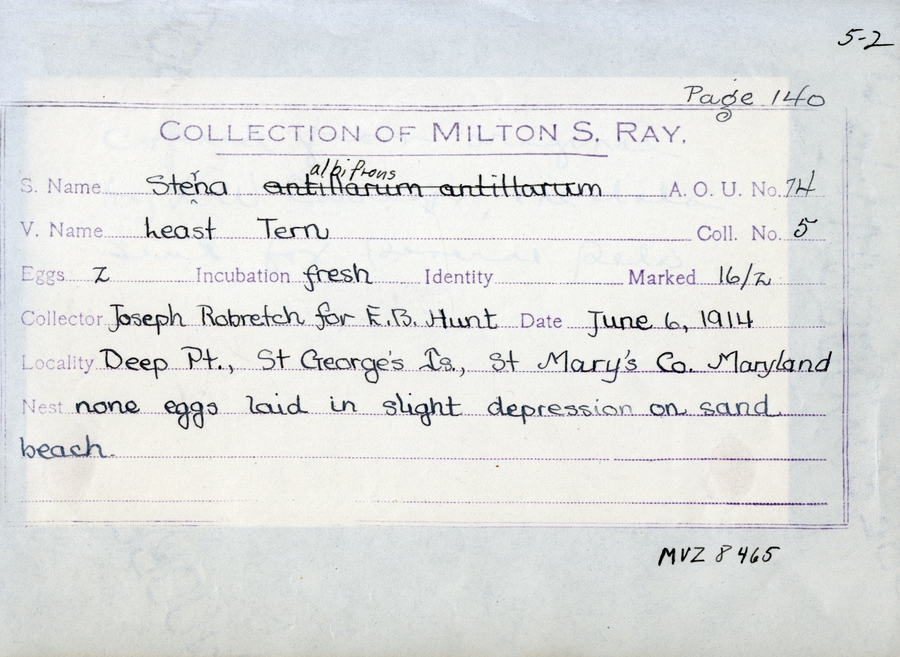 5-2
Page 140
COLLECTION OF MILTON S. RAY.
albifrons
S. Name Sterna antillarum antillarum A. O. U. No. 74
V. Name Least Tern Coll. No. 5
Eggs 2 Incubation fresh Identity Marked 16/2
Collector Joseph Robretch for E.B. Hunt Date June 6, 1914
Locality Deep Pt., St George's Is., St Mary's Co. Maryland
Nest none eggs laid in slight depression on sand
beach.
MVZ 8465